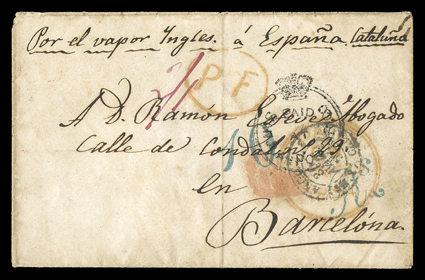 Por el vapor Ingles. á España. Cataluña
2/1
P F
PAID
A D. Ramón Esteve Abogado
Calle de Condal nº 29,
10
en
Rs
Barcelóna.